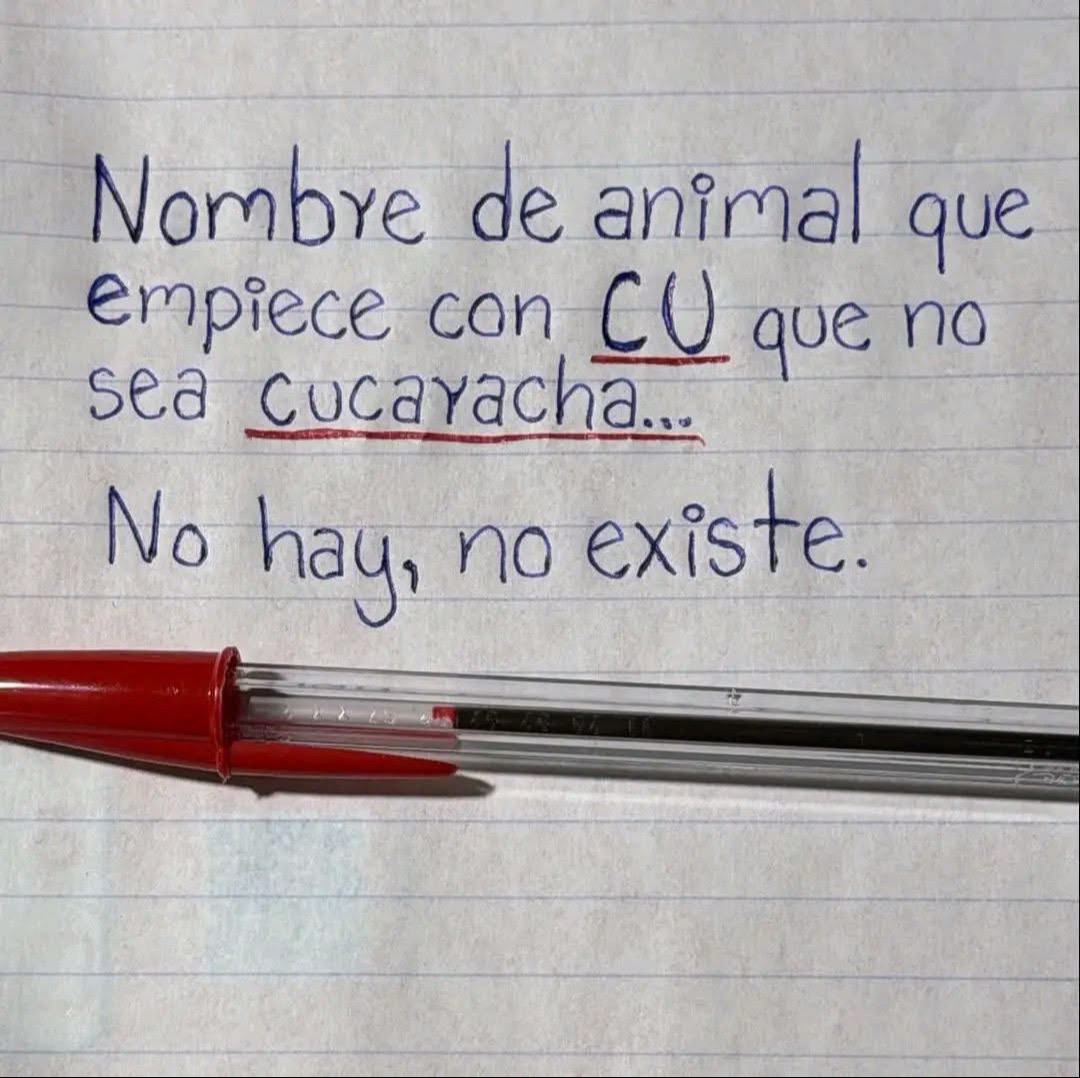 Nombre de animal que
empiece con CU que no
sea cucaracha...
No hay, no existe.